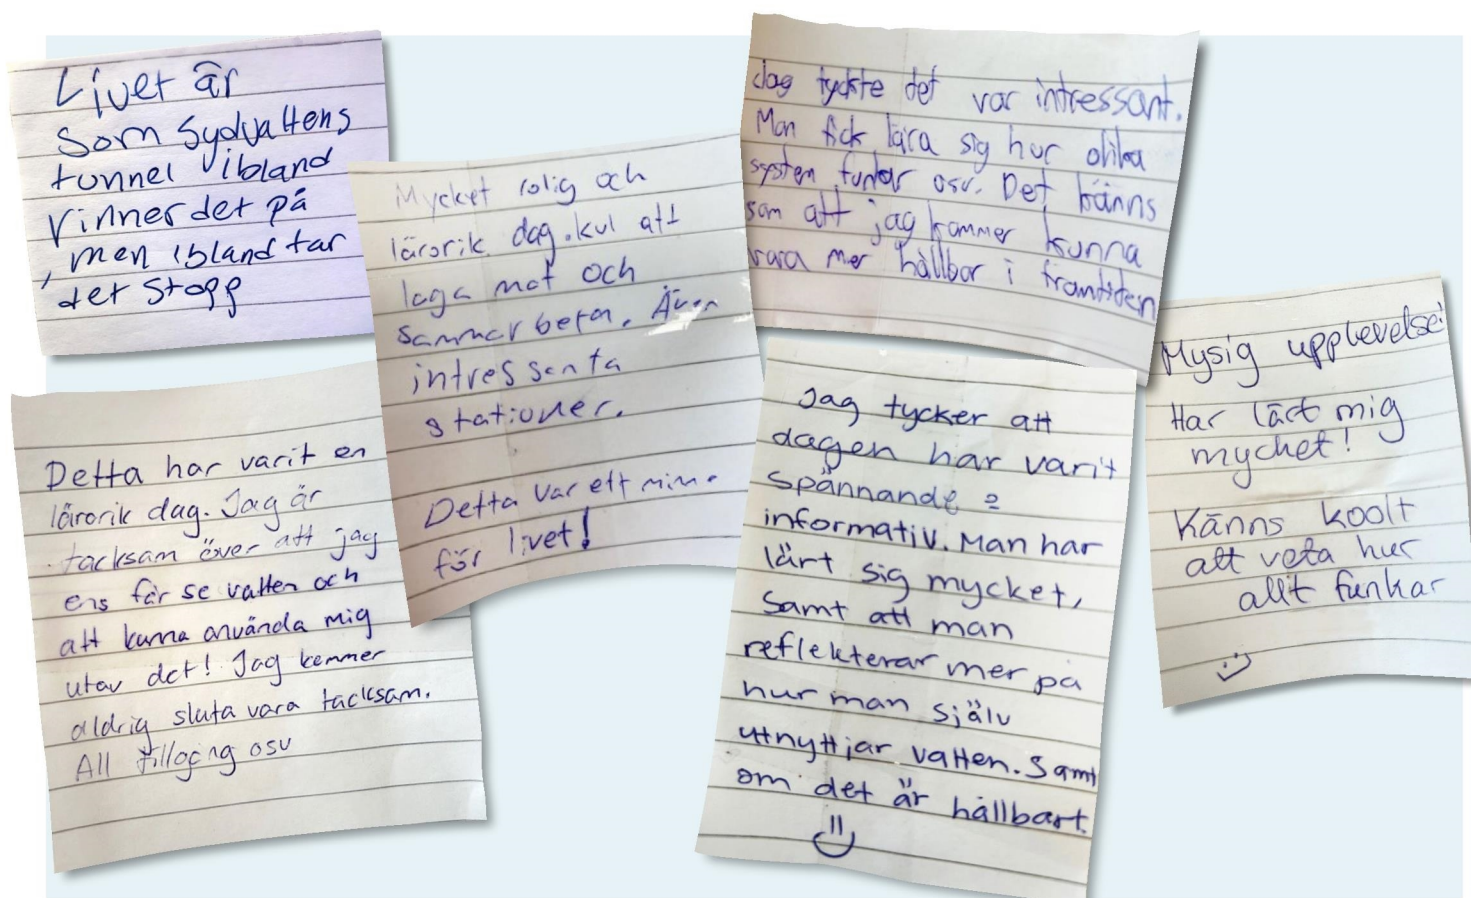 Livet är
som Sydvattens
tunnel ibland
rinner det på
, men ibland tar
det stopp
Mycket rolig och
lärorik dag. kul att
laga mat och
sammarbeta. Även
intressanta
stationer.
Detta var ett minne
för livet!
Jag tyckte det var intressant.
Man fick lära sig hur olika
system funkar osv. Det känns
som att jag kommer kunna
vara mer hållbar i framtiden
Detta har varit en
lärorik dag. Jag är
tacksam över att jag
ens får se vatten och
att kunna använda mig
utav det! Jag kommer
aldrig sluta vara tacksam.
All tillgång osv
Jag tycker att
dagen har varit
spännande &
informativ. Man har
lärt sig mycket,
samt att man
reflekterar mer på
hur man själv
uttnyttjar vatten. Samt
om det är hållbart.
Mysig upplevelse!
Har lärt mig
mycket!
Känns koolt
att veta hur
allt funkar
:)